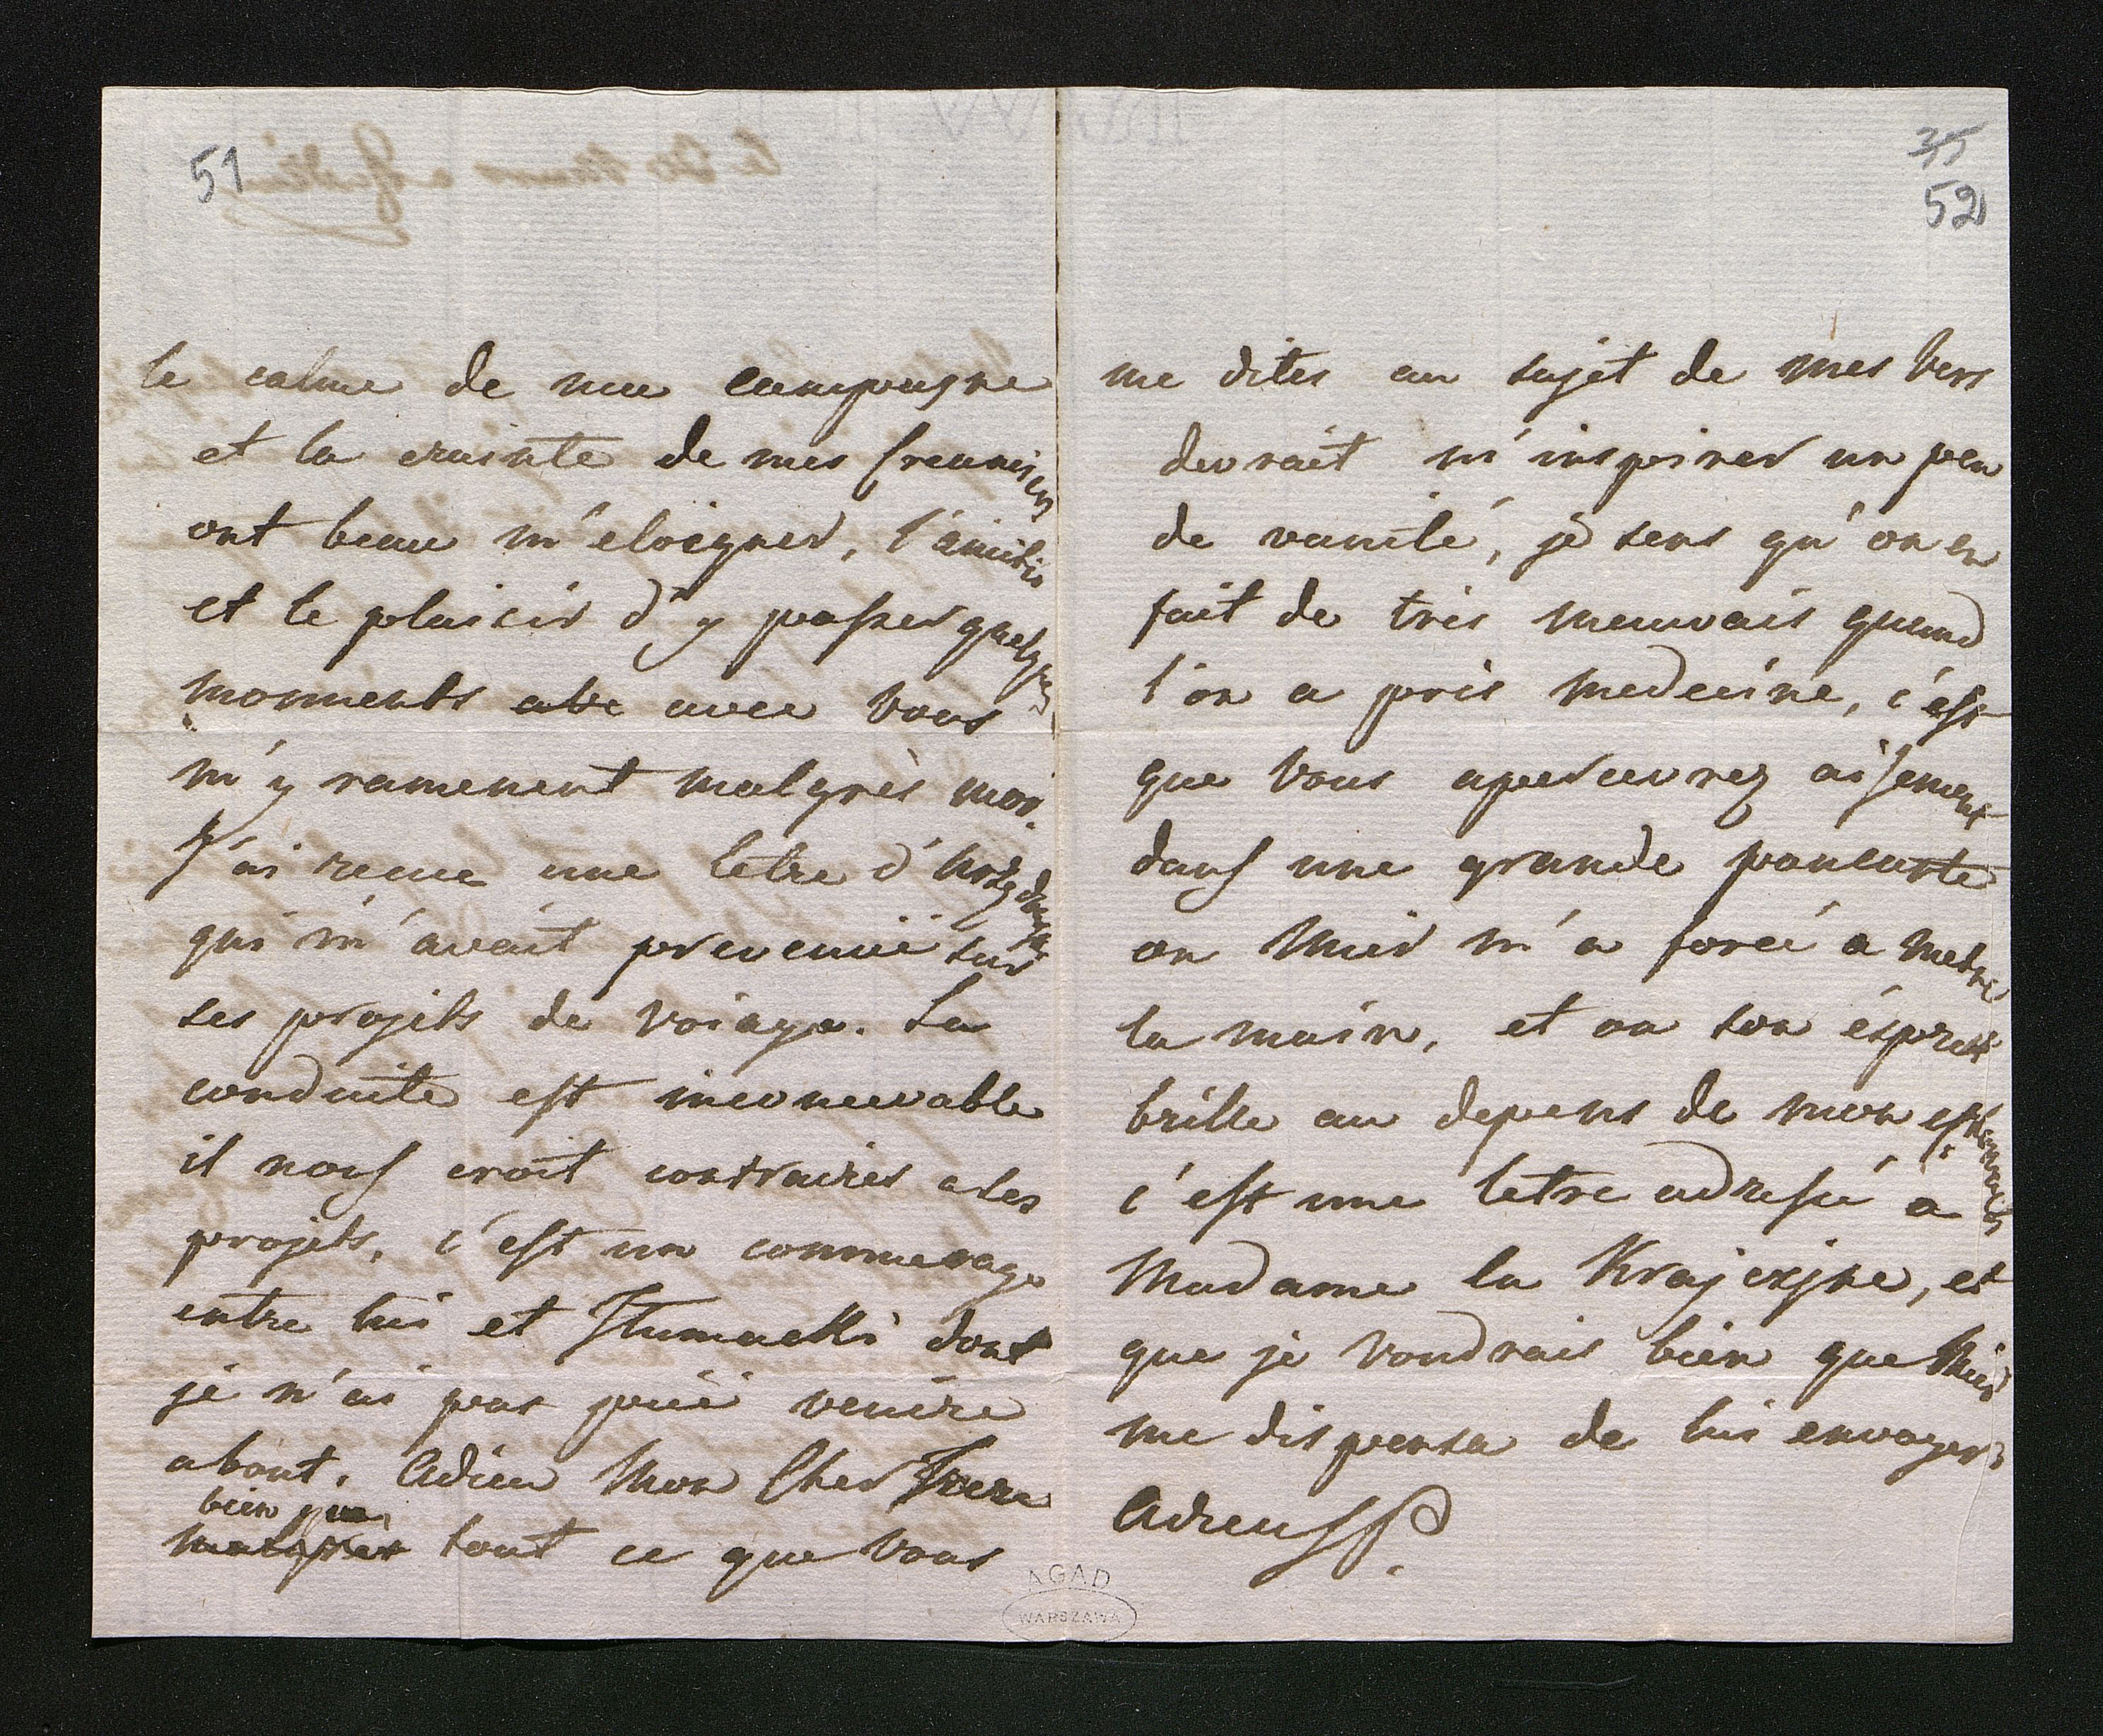 51
le calme de ma campagne
et la crainte de mes creanciers
ont beau m'eloigner, l'amitie
et le plaisir d'y passer quelques
moments avec vous
m'y ramenent malgrès moi.
J'ai reçue une letre d'
qui m'avait prevenüe sur
ses projets de voiage. Sa
conduite est inconcevable
il nous croit contraires a ses
projets, c'est un commerage
entre lui et Stumacki dont
je n'ai pas püe venire
a bout. Adieu Mon Cher Frere
bien que
malgrès tout ce que vous
35
52
me dites au sujet de mes Vers
devrait m'inspirer un peu
de vanité, je sens qu'on en
fait de tres mauvais quand
l'on a pris medecine, c'est
que vous apercevrez aisement
dans une grande pancarte
ou Mier m'a forcé a metre
la main, et ou son ésprit
brille au depens de mon estomac
c'est une letre adressé a
Madame la Krajczyne, et
que je voudrais bien que Mier
me dispensa de lui envoyer
Adieu
AGAD
WARSZAWA